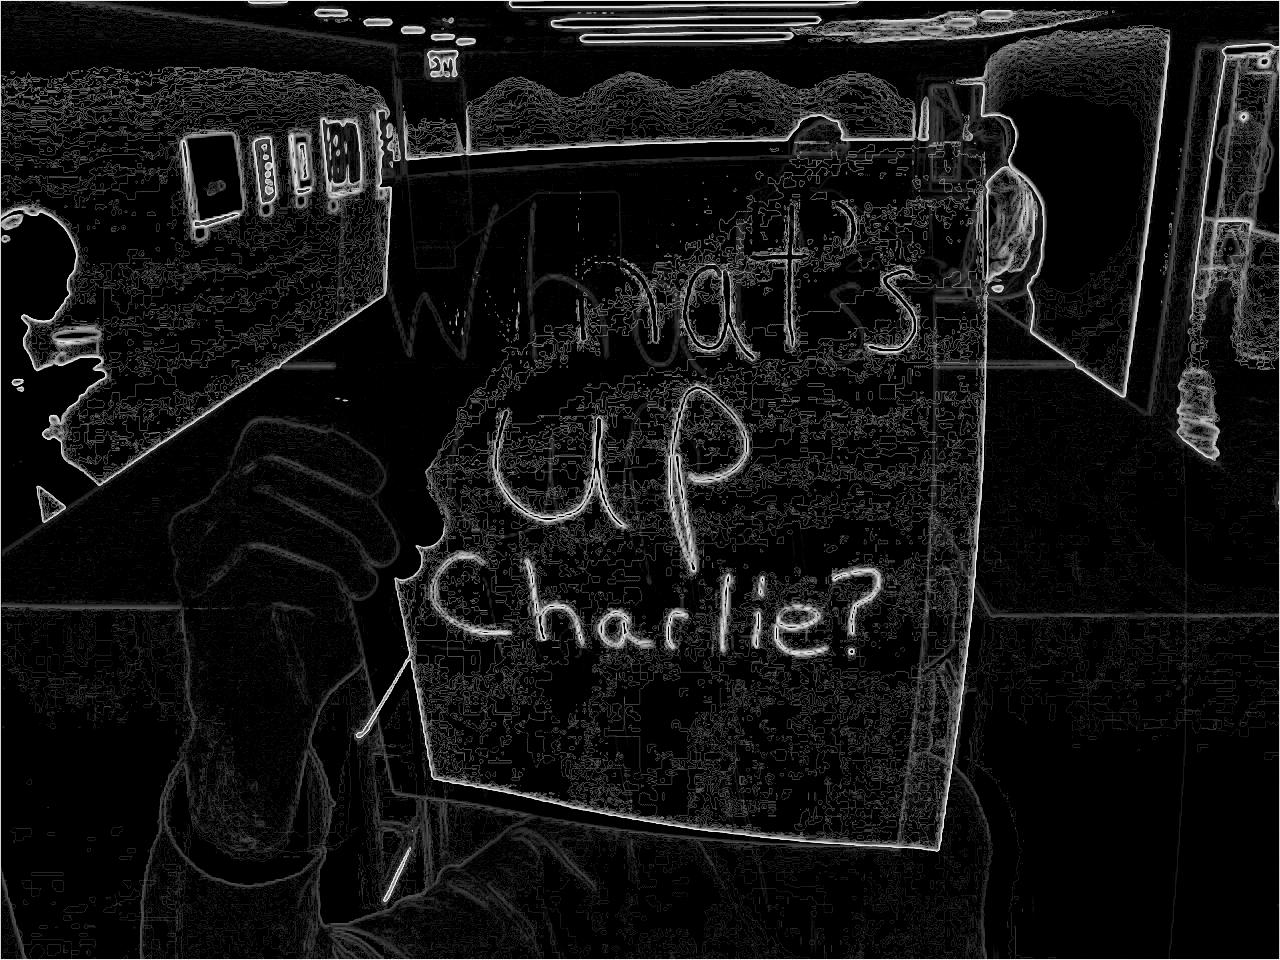 What's
up
Charlie?